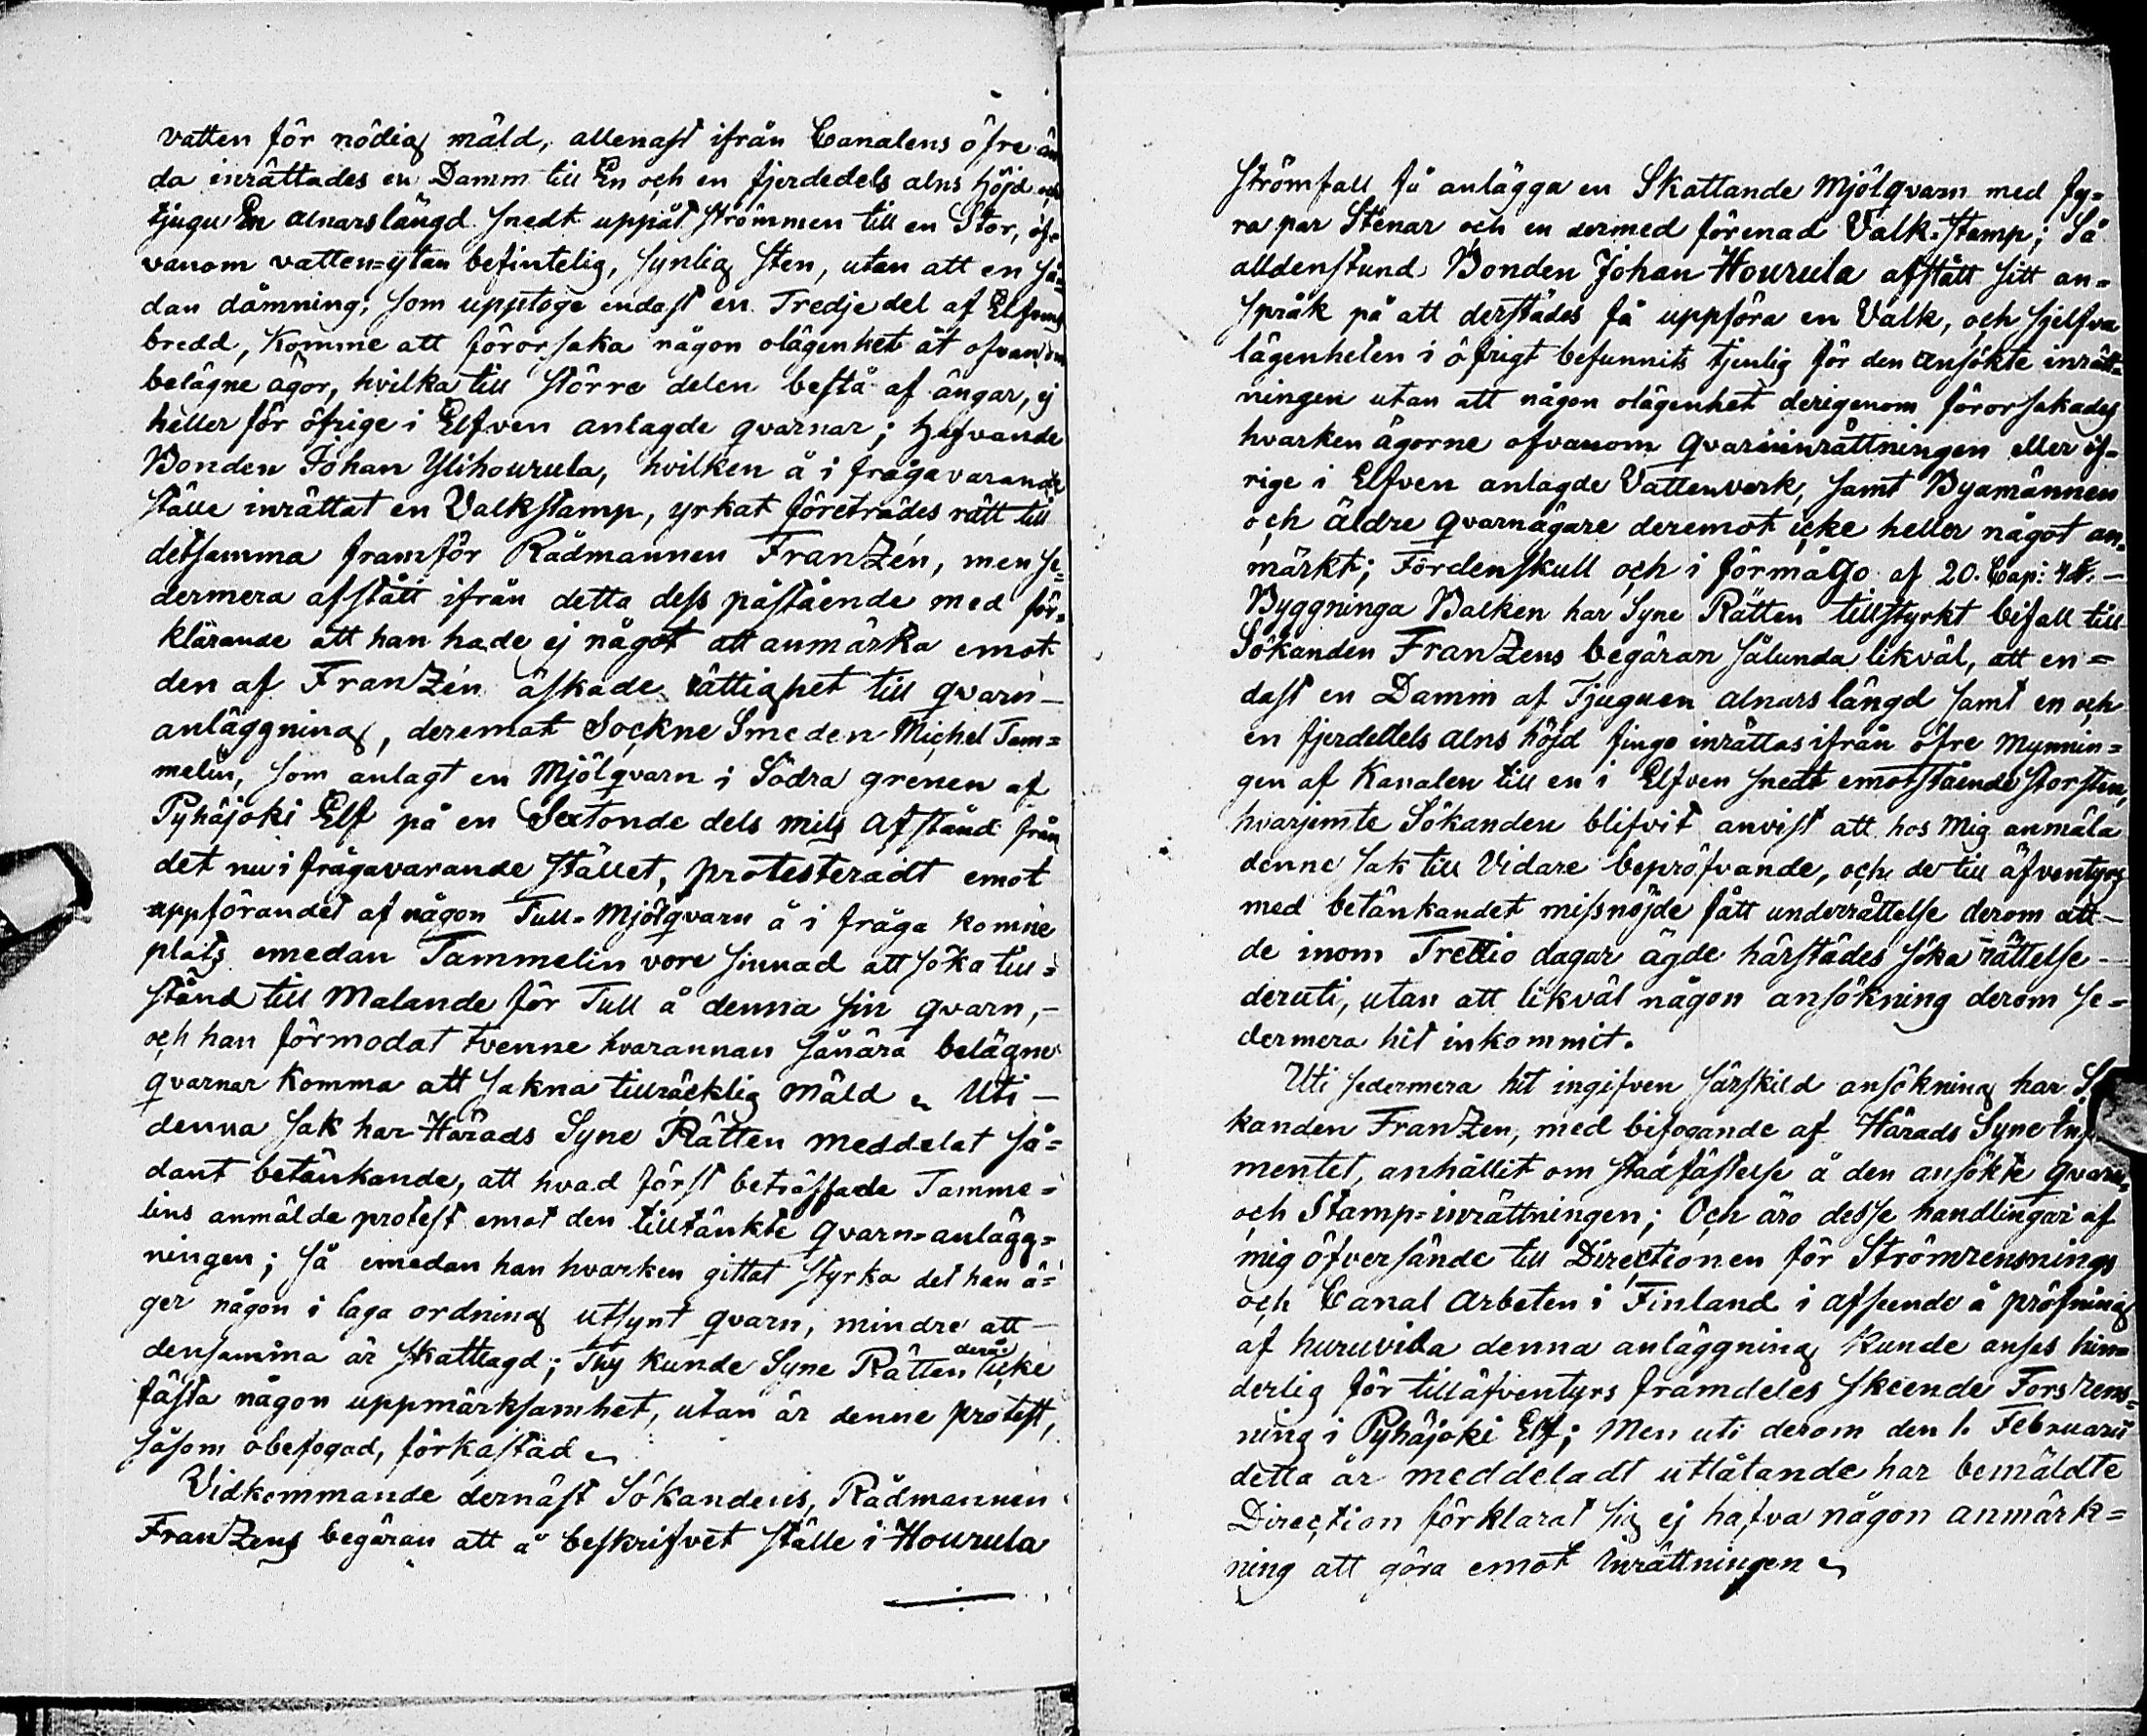 vatten för nödig mäld, allenast ifrån Canalens öfre än
da inrättades en Damm till En och en fjerdedels alns höjd och
tjugu En alnars längd snedt uppåt strömmen till en Stor, of-
vanom vatten=ytan befintelig, synlig sten, utan att en så=
dan dämning, som upptoge endast en Tredjedel af Elfvens
bredd, komme att förorsaka någon olägenhet åt ofvanom
belägne ägor, hvilka till större delen bestå af ängar, ej
heller för öfrige i Elfven anlagde qvarnar; Hafvande
Bonden Johan Ylihourula, hvilken å i frågavarande
ställe inrättat en Valkstamp, yrkat företrädes rätt till
detsamma framför Rådmannen FranZén, men se=
dermera afstått ifrån detta dess påstående med för=
klarande att han hade ej något att anmärka emot
den af FranZén äskade rättighet till qvarn-
anläggning, deremot Sockne Smeden Michel Tam=
melin, som anlagt en Mjölqvarn i Södra grenen af
Pyhäjoki Elf på en Sextonde dels mils afstånd från
det nu i frågavarande stället, protesteradt emot
uppförandet af någon Tull-Mjölqvarn å i fråga komne
plats emedan Tammelin vore sinnad att söka till=
stånd till Malande för Tull å denna sin qvarn,-
och han förmodat tvenne hvarannan sånära belägne
qvarnar komma att sakna tillräcklig mäld. Uti-
denna sak har Härads Syne Rätten meddelat så=
dant betänkande, att hvad först beträffade Tamme=
lins anmälde protest emot den tilltänkte qvarn-anlägg=
ningen; så emedan han hvarken gittat styrka det han ä=
ger någon i laga ordning utsynt qvarn, mindre att-
densamma är skattlagd; Thy kunde Syne Rätten derå icke
fästa någon uppmärksamhet, utan är denne protest,
såsom obefogad, förkastad.
Vidkommande dernäst Sökandens, Rådmannen
FranZens begäran att å beskrifvet ställe i Hourula
strömfall få anlägga en Skattlande Mjölqvarn med fy=
ra par Stenar och en dermed förenad Valk-stamp; Så
alldenstund Bonden Johan Hourula afstått sitt an=
språk på att derstädes få uppföra en Valk, och sjelfva
lägenheten i öfrigt befunnits tjenlig för den ansökte inrätt=
ningen utan att någon olägenhet derigenom förorsakades
hvarken ägorne ofvanom qvarninrättningen eller öf-
rige i Elfven anlagde Vattenverk, samt Byamännen
och äldre qvarnägare deremot icke heller något an=
märkt; Fördenskull och i förmågo af 20. Cap: 4 §.-
Byggninga Balken har Syne Rätten tillstyrkt bifall till
Sökanden FranZens begäran sålunda likväl, att en=
dast en Damm af Tjuguen alnars längd samt en och
en fjerdedels alns höjd finge inrättas ifrån öfre mynnin=
gen af Kanalen till en i Elfven snedt emotstående stor sten,
hvarjemte Sökanden blifvit anvist att hos Mig anmäla
denne sak till Vidare bepröfvande, och de till äfventyrs
med betänkandet missnöjde fått underrättelse derom att-
de inom Trettio dagar ägde härstädes söka rättelse-
deruti, utan att likväl någon ansökning derom se=
dermera hit inkommit.
Uti sedermera hit ingifven särskild ansökning har Sö
kanden FranZen, med bifogande af Härads Syne Inst
mentet, anhållit om stadfästelse å den ansökte qvarn=
och Stamp=inrättningen; Och äro desse handlingar af
mig öfversände till Directionen för Strömrensnings
och Canal Arbeten i Finland i afseende å pröfning
af huruvida denna anläggning kunde anses hin=
derlig för tilläfventyrs framdeles skeende Forsrens=
ning i Pyhäjoki Elf; Men uti derom den 1. Februarii
detta år meddeladt utlåtande har bemäldte
Direction förklarat sig ej hafva någon anmärk=
ning att göra emot inrättningen.